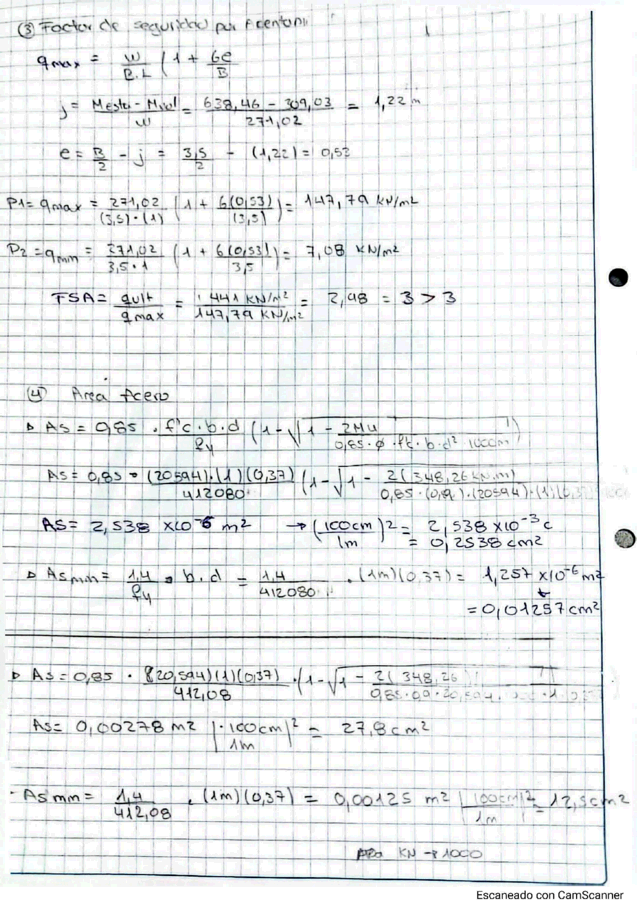 (3) Factor de seguridad por
qmax = W/B.L (1 + 6e/B
j = Mesta - Mvol/W = 638,46 - 309,03/271,02 = 1,22 m
e = B/2 - j = 3,5/2 - (1,22) = 0,53
P1 = qmax = 271,02/(3,5)·(1) (1 + 6(0,53)/(3,5)) = 147,79 KN/m2
P2 = qmin = 271,02/3,5·1 (1 + 6(0,53)/3,5) = 7,08 KN/m2
FSA = qult/qmax = 441 KN/m2/147,79 KN/m2 = 2,98 = 3 > 3
(4) Area Acero
AS = 0,85 · f'c·b·d/fy (1-√1 - 2Mu/0,85·Ø·f'c·b·d2·100cm)
AS = 0,85 · (20594)·(1)(0,37)/412080 (1-√1 - 2(348,26KN.m)/0,85·(0,9)·(20594)·(1)(0,37
AS = 2,538 x10-6 m2 → (100cm/1m)2 = 2,538 x10-3 c
= 0,2538 cm2
Asmin = 1,4/fy · b.d = 1,4/412080 · (1m)(0,37) = 1,257 x10-6 m2
= 0,01257cm2
AS = 0,85 · (20,594)(1)(0,37)/412,08 · (1-√1 - 2(348,26)
AS = 0,00278 m2 |·100cm/1m|2 = 27,8cm2
- Asmin = 1,4/412,08 · (1m)(0,37) = 0,00125 m2 |100cm/1m|2 = 12,5cm2
KN → 1000
Escaneado con CamScanner